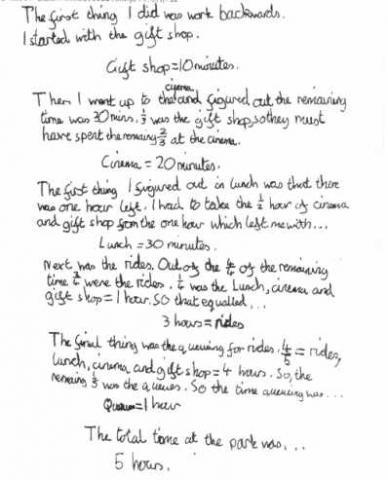 The first thing I did was work backwards.
I started with the gift shop.
Gift shop = 10 minutes.
cinema
Then I went up to the and figured out the remaining
time was 30 mins. 1/3 was the gift shop, so they must
have spent the remaing 2/3 at the cinema.
Cinema = 20 minutes.
The first thing I figured out in lunch was that there
was one hour left. I had to take the 1/2 hour of cinema
and gift shop from the one hour which left me with...
Lunch = 30 minutes.
Next was the rides. Out of the of the remaining
time were the rides. was the Lunch, cinema and
gift shop = 1 hour. SO that equalled...
3 hours = rides
The final thing was the queueing for rides. 4/5 = rides,
lunch, cinema and gift shop = 4 hours. So, the
remaing 1/5 was the queues. So the time queueing was...
= 1 hour
The total time at the park was...
5 hours.